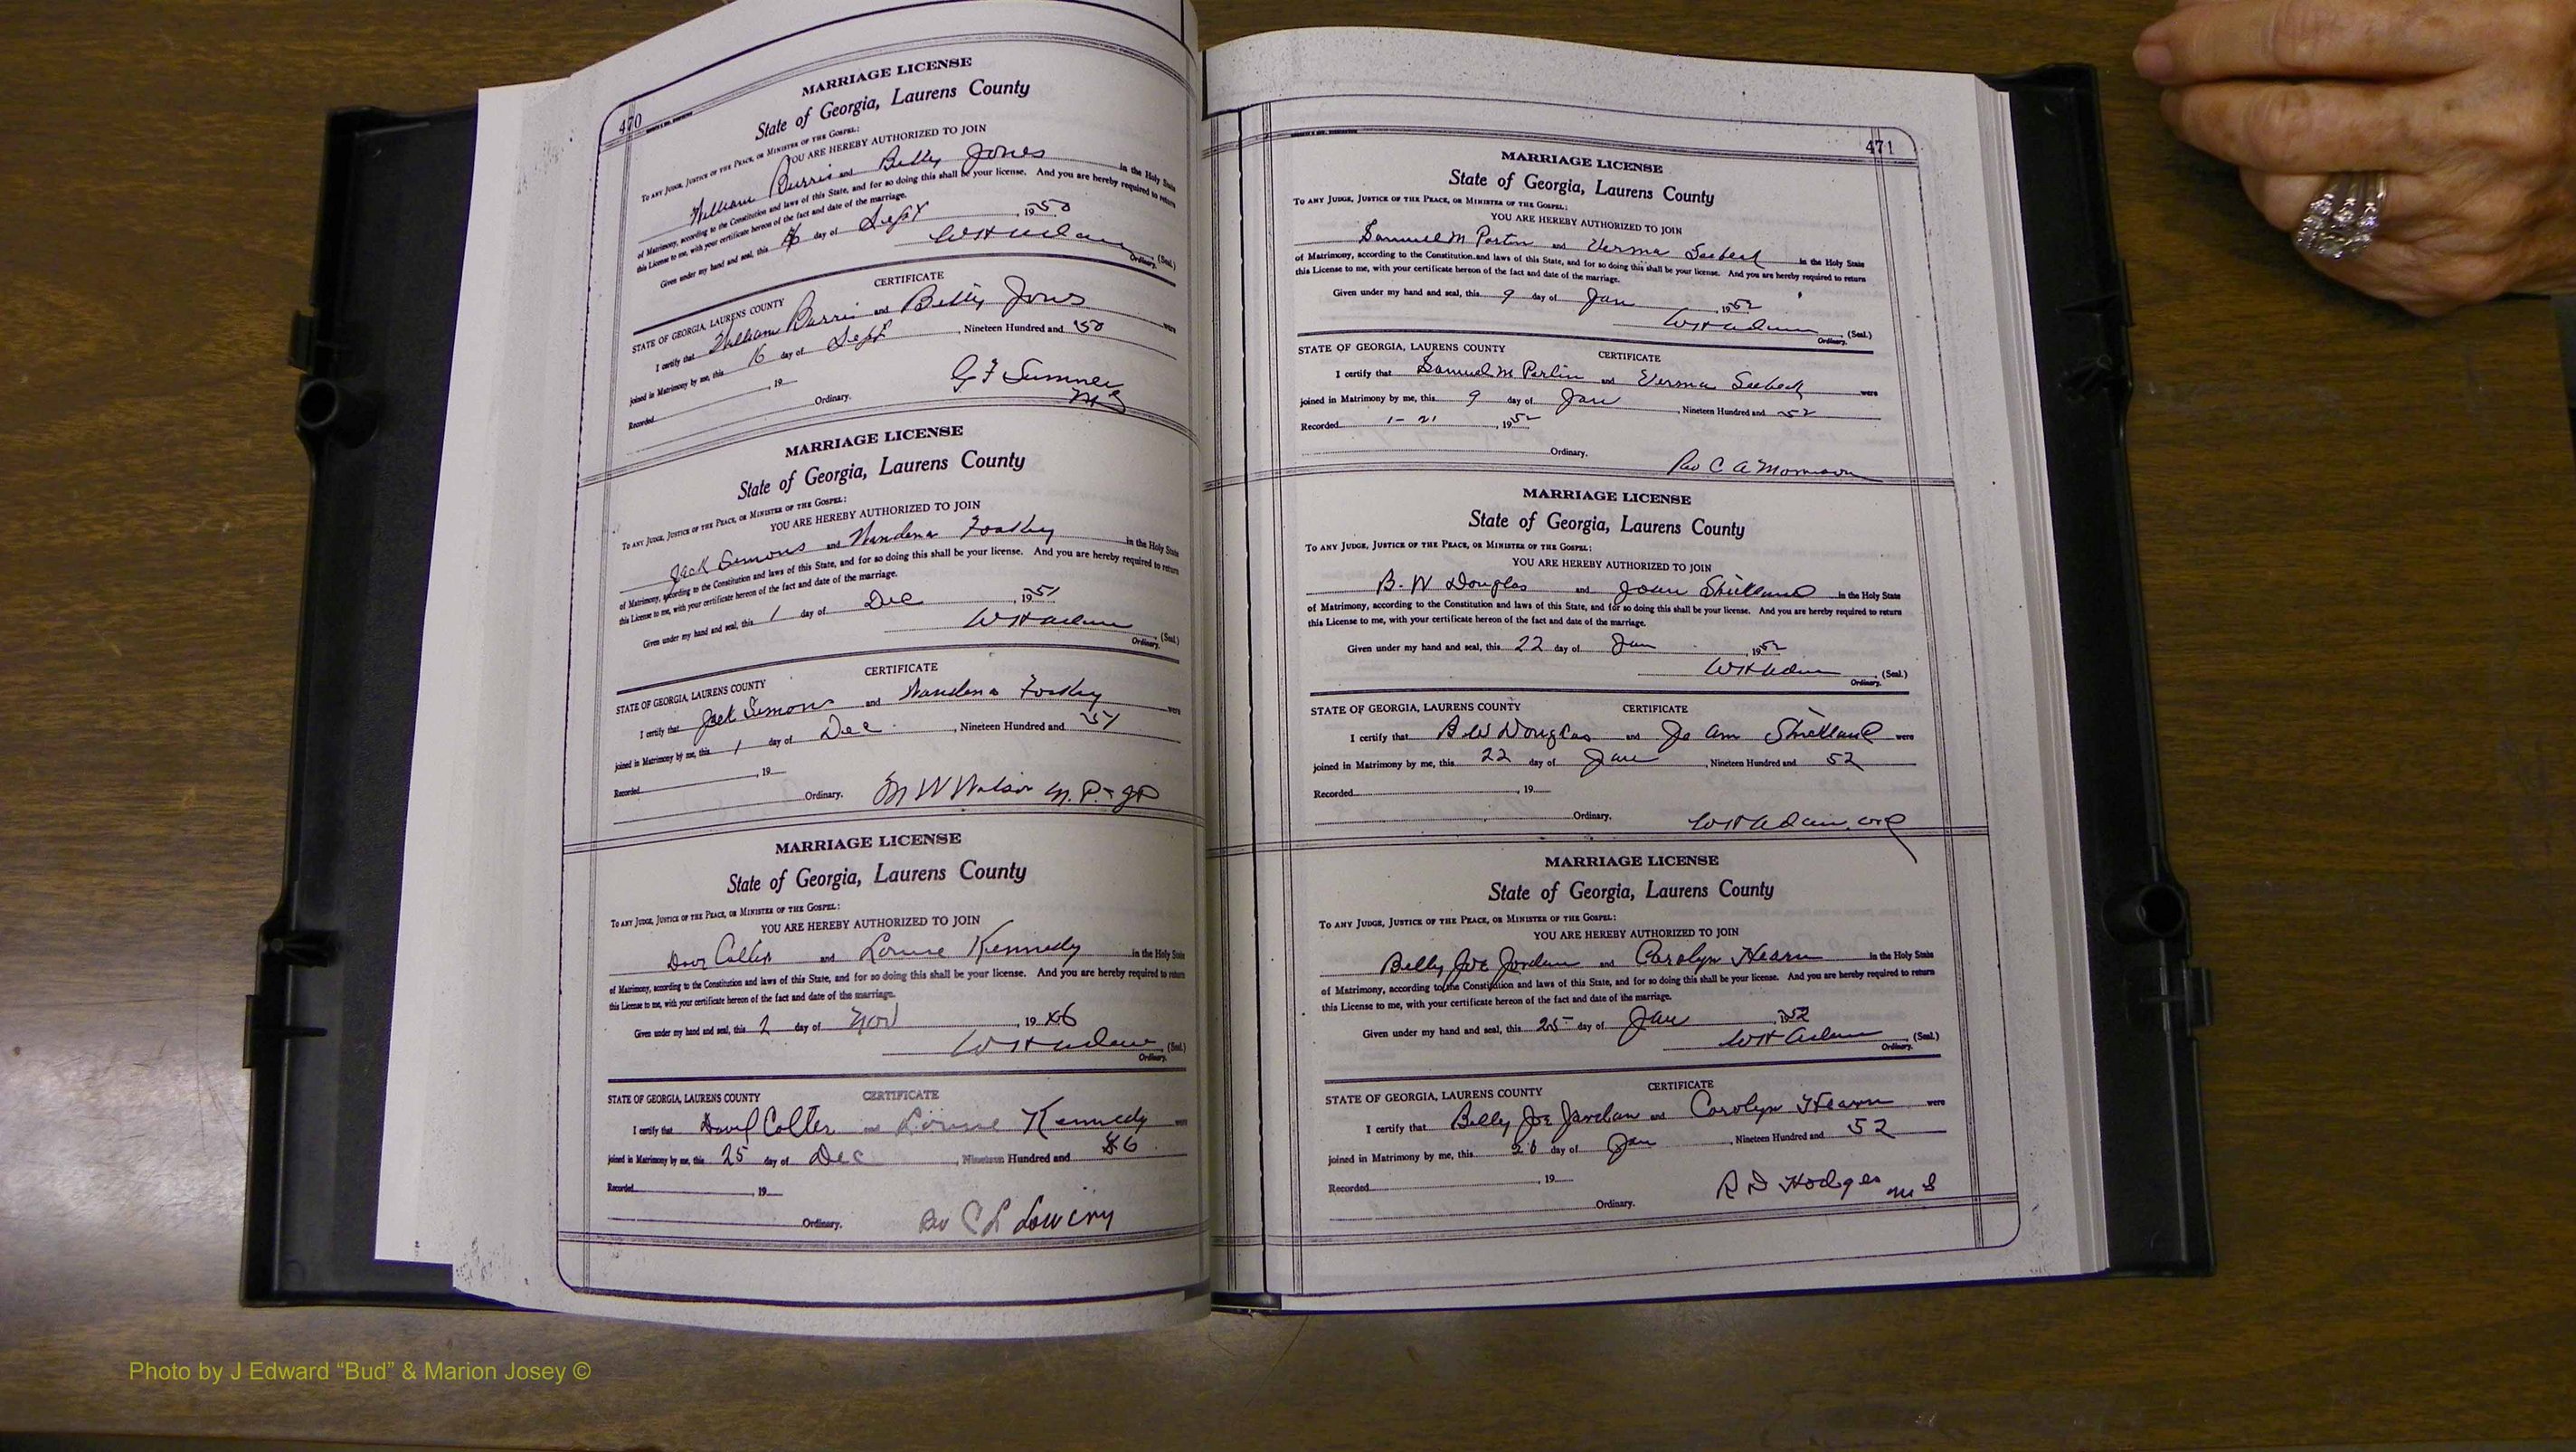 470
MARRIAGE LICENSE
State of Georgia, Laurens County
To any Judge, Justice of the Peace, or Minister of the Gospel:
YOU ARE HEREBY AUTHORIZED TO JOIN
William Burris and Betty Jones in the Holy State
of Matrimony, according to the Constitution and laws of this State, and for so doing this shall be your license. And you are hereby required to return
this License to me, with your certificate hereon of the fact and date of the marriage.
Given under my hand and seal, this 16 day of Sept, 1950
WH Adams (Seal.)
Ordinary.
CERTIFICATE
STATE OF GEORGIA, LAURENS COUNTY
I certify that William Burris and Betty Jones were
joined in Matrimony by me, this 16 day of Sept, Nineteen Hundred and 50
Recorded , 19
Ordinary.
G F Sumner
MG
MARRIAGE LICENSE
State of Georgia, Laurens County
To any Judge, Justice of the Peace, or Minister of the Gospel:
YOU ARE HEREBY AUTHORIZED TO JOIN
Jack Simons and Wandena Foskey in the Holy State
of Matrimony, according to the Constitution and laws of this State, and for so doing this shall be your license. And you are hereby required to return
this License to me, with your certificate hereon of the fact and date of the marriage.
Given under my hand and seal, this 1 day of Dec, 1951
WH Adams (Seal.)
Ordinary.
CERTIFICATE
STATE OF GEORGIA, LAURENS COUNTY
I certify that Jack Simons and Wandena Foskey were
joined in Matrimony by me, this 1 day of Dec, Nineteen Hundred and 51
Recorded , 19
Ordinary. M W Wilson N.P. & JP
MARRIAGE LICENSE
State of Georgia, Laurens County
To any Judge, Justice of the Peace, or Minister of the Gospel:
YOU ARE HEREBY AUTHORIZED TO JOIN
and Louise Kennedy in the Holy State
of Matrimony, according to the Constitution and laws of this State, and for so doing this shall be your license. And you are hereby required to return
this License to me, with your certificate hereon of the fact and date of the marriage.
Given under my hand and seal, this 2 day of Nov, 1946
WH Adams (Seal.)
Ordinary.
CERTIFICATE
STATE OF GEORGIA, LAURENS COUNTY
I certify that and Louise Kennedy were
joined in Matrimony by me, this 25 day of Dec, Nineteen Hundred and 46
Recorded , 19
Ordinary. Rev C L Lowery
471
MARRIAGE LICENSE
State of Georgia, Laurens County
To any Judge, Justice of the Peace, or Minister of the Gospel:
YOU ARE HEREBY AUTHORIZED TO JOIN
Samuel M Partin and Verma in the Holy State
of Matrimony, according to the Constitution and laws of this State, and for so doing this shall be your license. And you are hereby required to return
this License to me, with your certificate hereon of the fact and date of the marriage.
Given under my hand and seal, this 9 day of Jan, 1952
WH Adams (Seal.)
Ordinary.
STATE OF GEORGIA, LAURENS COUNTY CERTIFICATE
I certify that Samuel M Partin and Verma were
joined in Matrimony by me, this 9 day of Jan, Nineteen Hundred and 52
Recorded 1-21, 1952
Ordinary.
Rev C A Morrison
MARRIAGE LICENSE
State of Georgia, Laurens County
To any Judge, Justice of the Peace, or Minister of the Gospel:
YOU ARE HEREBY AUTHORIZED TO JOIN
B. W Douglas and Joan Strickland in the Holy State
of Matrimony, according to the Constitution and laws of this State, and for so doing this shall be your license. And you are hereby required to return
this License to me, with your certificate hereon of the fact and date of the marriage.
Given under my hand and seal, this 22 day of Jan, 1952
WH Adams (Seal.)
Ordinary.
STATE OF GEORGIA, LAURENS COUNTY CERTIFICATE
I certify that B.W Douglas and Jo Ann Strickland were
joined in Matrimony by me, this 22 day of Jan, Nineteen Hundred and 52
Recorded , 19
Ordinary. WH Adams, Ord
MARRIAGE LICENSE
State of Georgia, Laurens County
To any Judge, Justice of the Peace, or Minister of the Gospel:
YOU ARE HEREBY AUTHORIZED TO JOIN
Billy Joe Jordan and Carolyn Hearn in the Holy State
of Matrimony, according to the Constitution and laws of this State, and for so doing this shall be your license. And you are hereby required to return
this License to me, with your certificate hereon of the fact and date of the marriage.
Given under my hand and seal, this 25 day of Jan, 1952
WH Adams (Seal.)
Ordinary.
STATE OF GEORGIA, LAURENS COUNTY CERTIFICATE
I certify that Billy Joe Jordan and Carolyn Hearn were
joined in Matrimony by me, this 26 day of Jan, Nineteen Hundred and 52
Recorded , 19
Ordinary. R D Hodges MG
Photo by J Edward “Bud” & Marion Josey ©